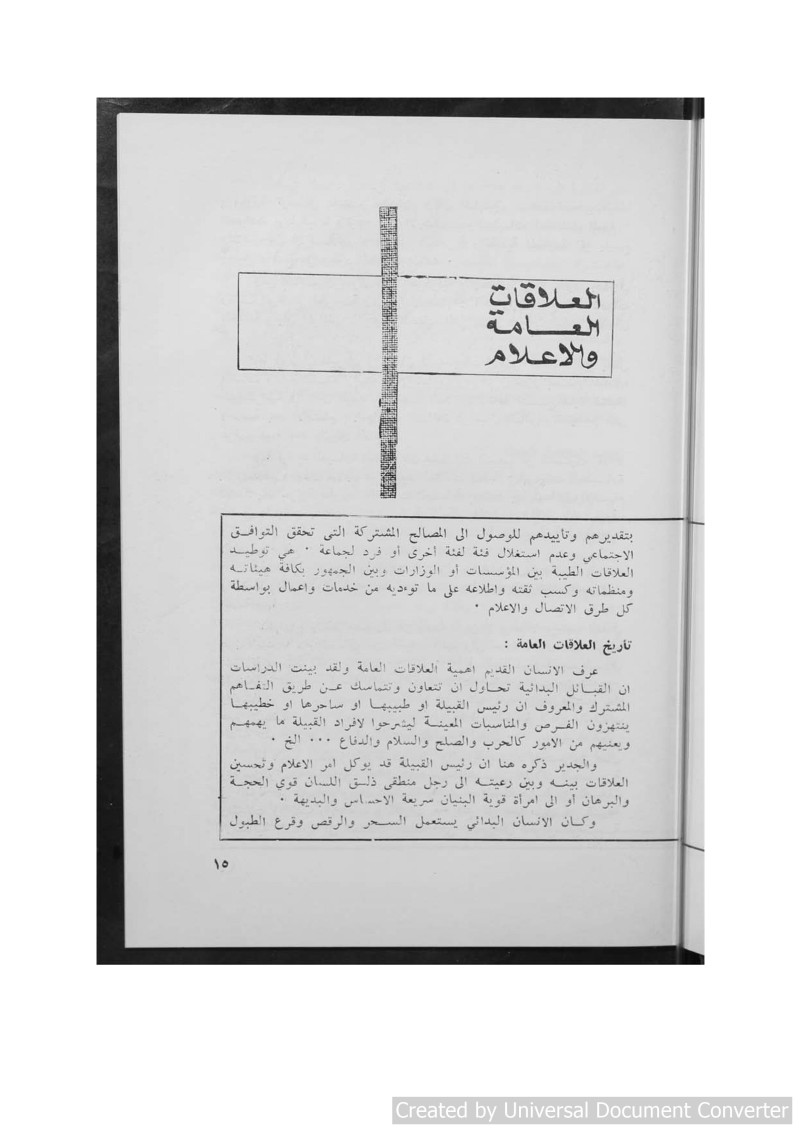 العلاقات
العامة
والاعلام
بتقديرهم وتأييدهم للوصول الى المصالح المشتركة التى تحقق التوافق
الاجتماعي وعدم استغلال فئة لفئة أخرى أو فرد لجماعة ٠ هي توطيد
العلاقات الطيبة بين المؤسسات أو الوزارات وبين الجمهور بكافة هيئاته
ومنظماته وكسب ثقته واطلاعه على ما توءديه من خدمات واعمال بواسطة
كل طرق الاتصال والاعلام ٠
تأريخ العلاقات العامة :
عرف الانسان القديم اهمية العلاقات العامة ولقد بينت الدراسات
ان القبائل البدائية تحاول ان تتعاون وتتماسك عن طريق التفاهم
المشترك والمعروف ان رئيس القبيلة او طبيبها او ساحرها او خطيبها
ينتهزون الفرص والمناسبات المعينة ليشرحوا لافراد القبيلة ما يهمهم
ويعنيهم من الامور كالحرب والصلح والسلام والدفاع ٠٠٠ الخ ٠
والجدير ذكره هنا ان رئيس القبيلة قد يوكل امر الاعلام وتحسين
العلاقات بينه وبين رعيته الى رجل منطقى ذلق اللسان قوي الحجة
والبرهان أو الى امرأة قوية البنيان سريعة الاحساس والبديهة ٠
وكان الانسان البدائي يستعمل السحر والرقص وقرع الطبول
١٥
Created by Universal Document Converter